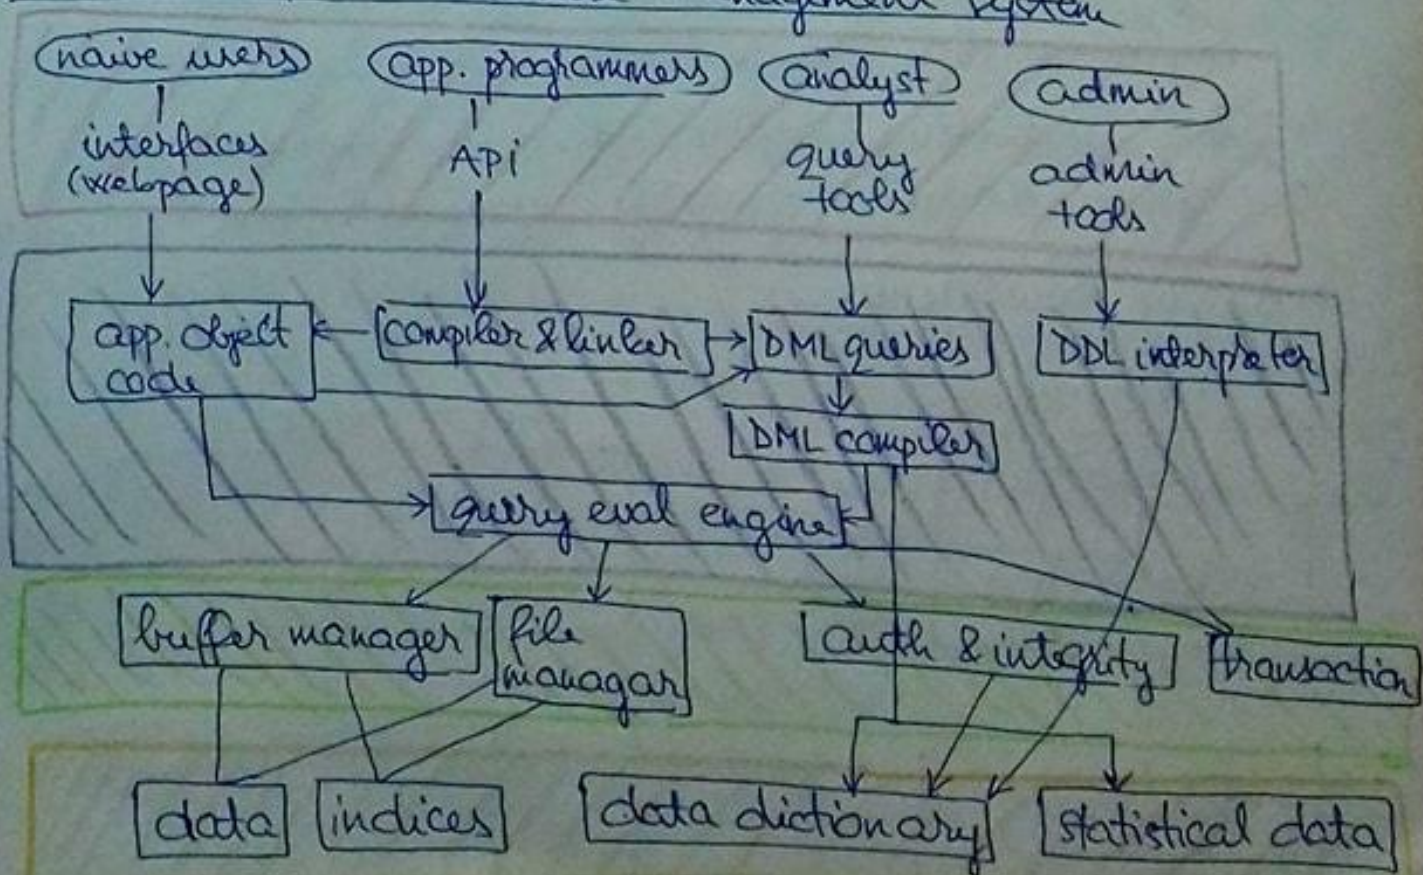 system
naive users
app. programmers
analyst
admin
interfaces
(webpage)
API
query
tools
admin
tools
app. object
code
compiler & linker
DML queries
DDL interpreter
DML compiler
query eval engine
buffer manager
file
managar
auth & integrity
transaction
data
indices
data dictionary
statistical data